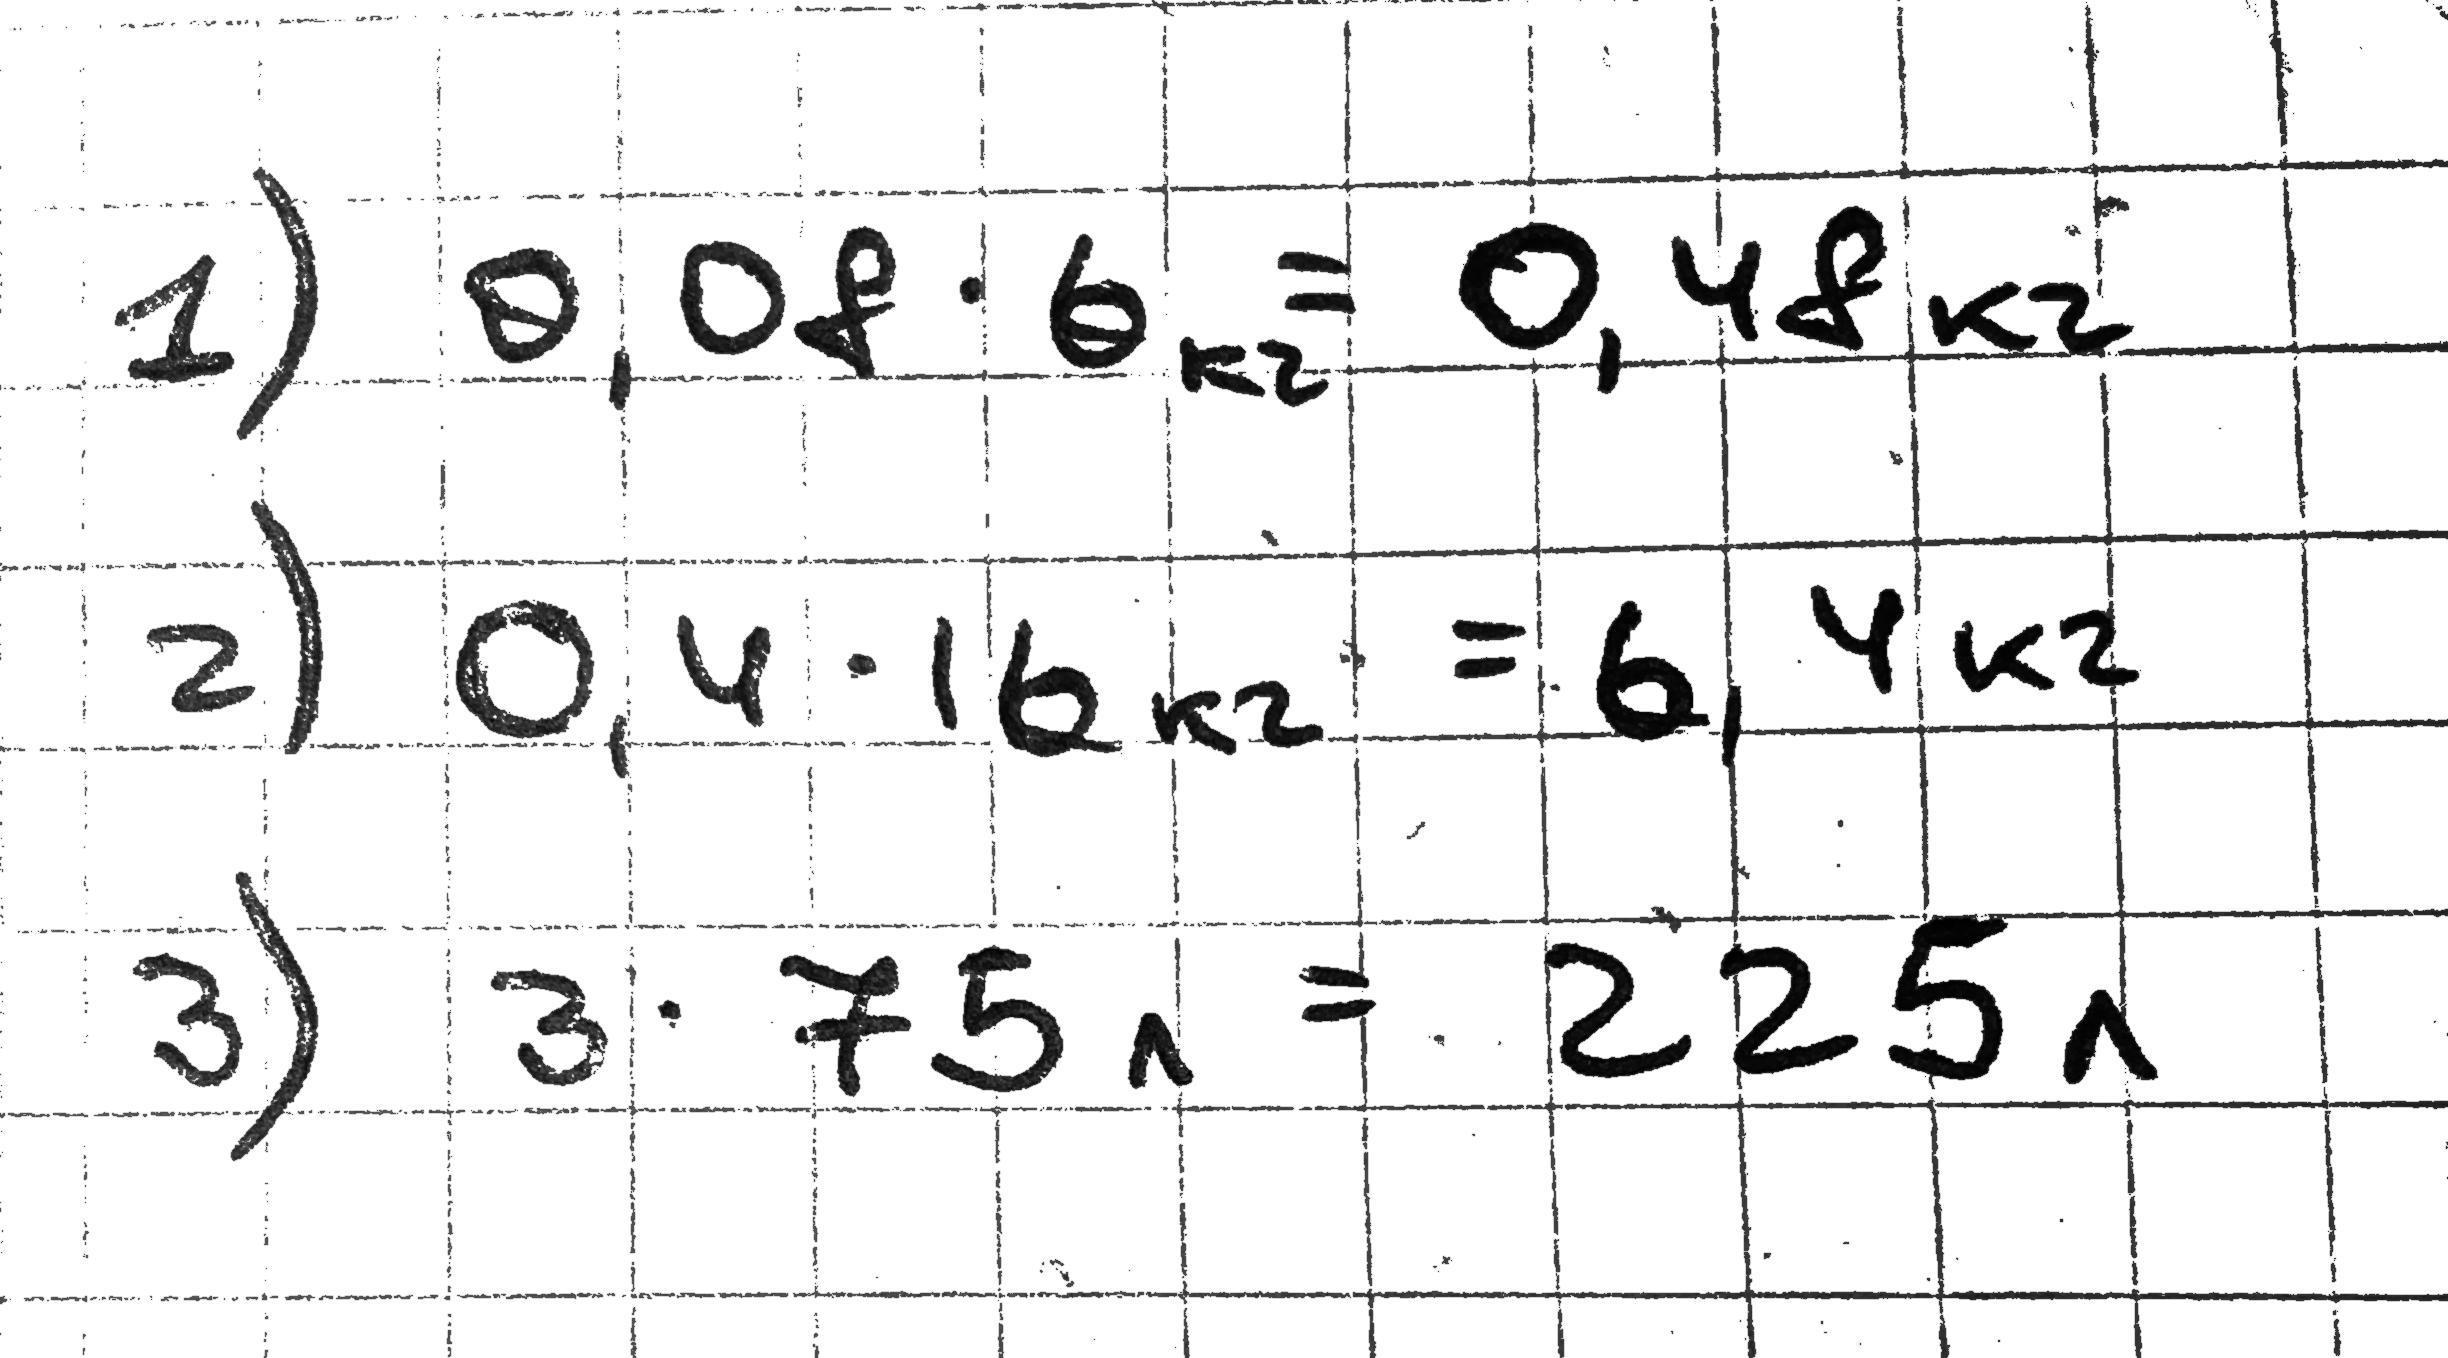 1) 0,08 · 6 кг = 0,48 кг
2) 0,4 · 16 кг = 6,4 кг
3) 3 · 75 л = 225 л